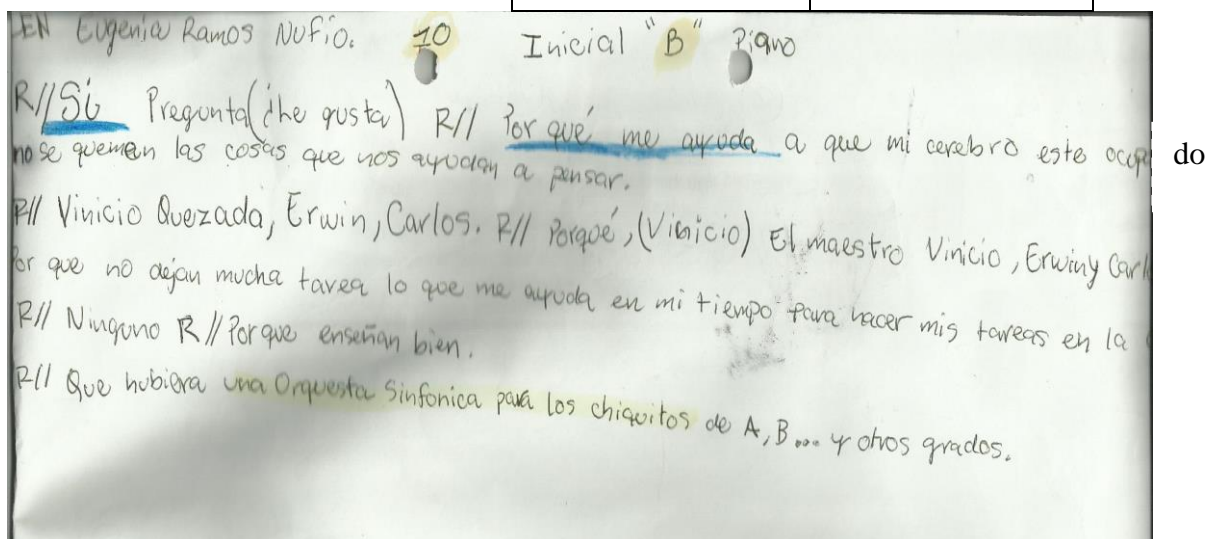 EN Eugenia Ramos Nufio. 10 Inicial "B" Piano
R// Si Pregunta (¿he gusta) R// Por qué me ayuda a que mi cerebro este ocupa do
no se quemen las cosas que nos ayudan a pensar.
R// Vinicio Quezada, Erwin, Carlos. R// Porqué, (Vinicio) El maestro Vinicio, Erwin y Carl
Por que no dejan mucha tarea lo que me ayuda en mi tiempo para hacer mis tareas en la
R// Ninguno R// Porque enseñan bien.
R// Que hubiera una Orquesta Sinfonica para los chiquitos de A, B... y otros grados.